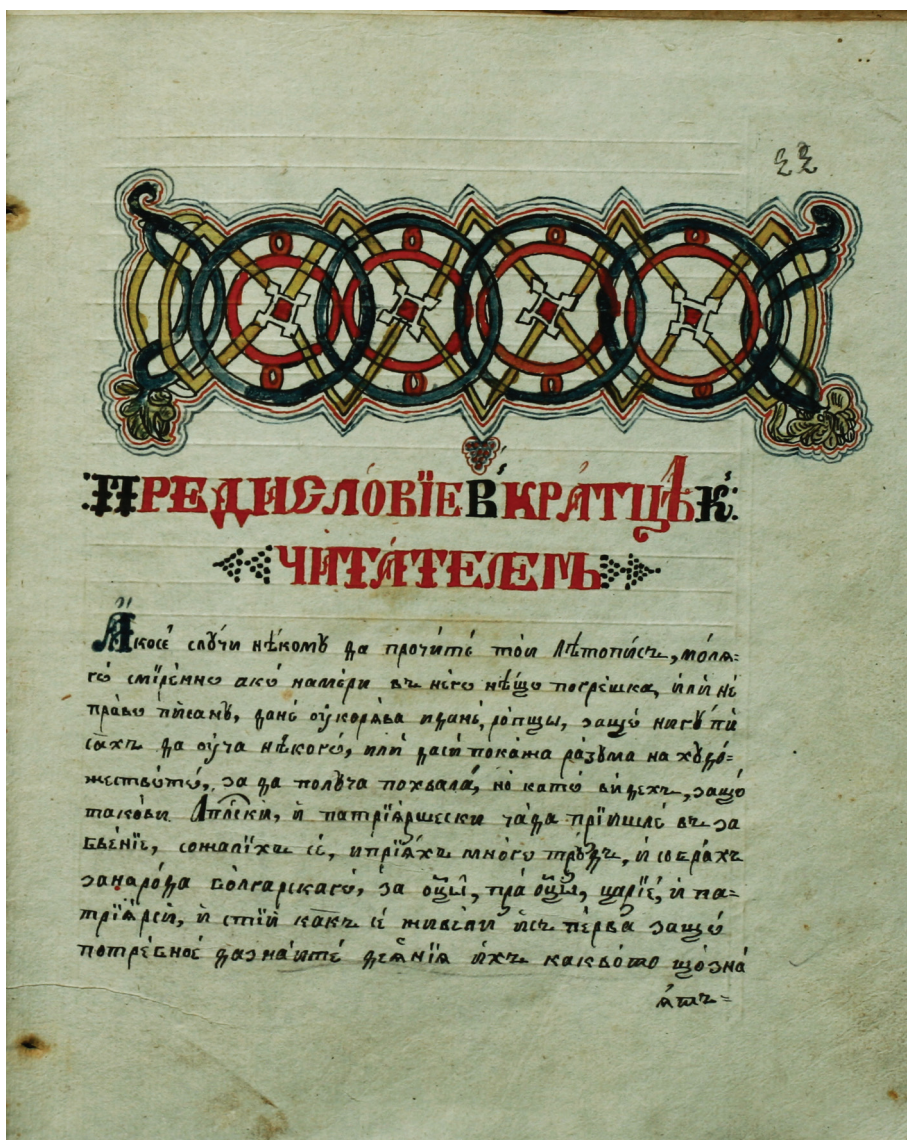 ПРЕДИСЛОВЇЕ В̾ КРА́ТЦѢ К̾
ЧИТА́ТЕЛЕМЪ
А҆́косе́ слꙋ́чи нѣ́комꙋ да прочите́ той лѣ́топи́съ, мо́ля=
го́ смїре́нно ако́ намѣ́ри въ него́ нѣ́що погре́шка, и҆лѝ не́
пра́во пи́санꙋ, дане́ оу҆корява идане́, ро́пщы, защо́ нигꙋ пи
са́хъ да оу҆́ча нѣ́кого, илѝ даси́ пока́жа ра́зꙋма на хꙋдо́=
жество́то, за да полꙋ́ча похвала̀, но́ като́ ви́дехъ, защо́
тако́ви А҆пⷭ҇лски, и҆ патрїа́ршески ча́да прїи́шле въ за
бве́нїе, сожали́хъ се́, и прїя́хъ мно́го трꙋ́дъ, и҆ собра́хъ
занаро́да бо́лгарскаго, за о҆цы̀, пра о҆цы̀, ца́рїе, и҆ па=
трїа́рси, и҆ ст҃їи ка́къ се́ живе́ли и҆съ пе́рва защо́
потре́бное да зна́ите дея҆́нїя и҆́хъ какво́то що́ зна́
ятъ=